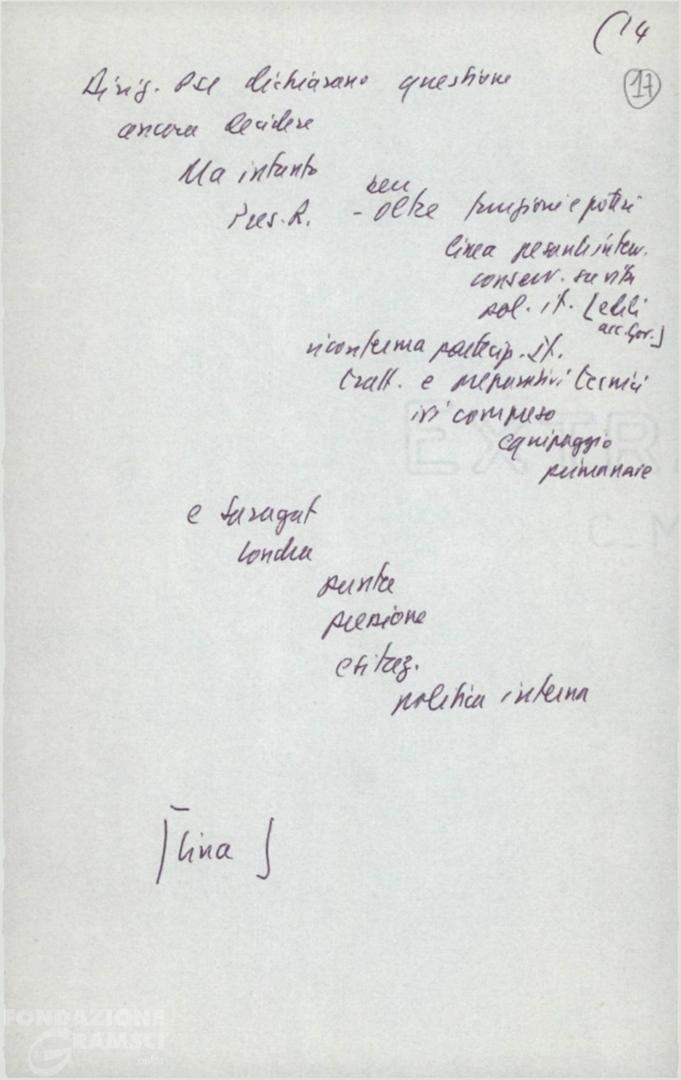 (14
17
Dirig. PSI dichiarano questione
ancora decidere
Ma intanto
ben
Pres. R. - oltre funzioni e poteri
linea pesanti interv.
conserv. su vita
pol. it. [
acc. Gov.]
riconferma partecip. It.
tratt. e preparativi tecnici
ivi compreso
equipaggio
e Saragat
Londra
punta
pressione
esitaz.
politica interna
[Cina]
EXTRA
C_M
FONDAZIONE
GRAMSCI